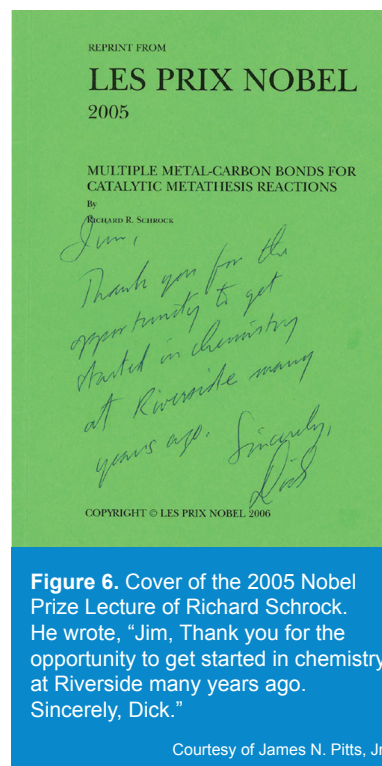 REPRINT FROM
LES PRIX NOBEL
2005
MULTIPLE METAL-CARBON BONDS FOR
CATALYTIC METATHESIS REACTIONS
By
RICHARD R. SCHROCK
Jim,
Thank you for the
opportunity to get
started in chemistry
at Riverside many
years ago. Sincerely,
Dick
COPYRIGHT © LES PRIX NOBEL 2006
Figure 6. Cover of the 2005 Nobel
Prize Lecture of Richard Schrock.
He wrote, “Jim, Thank you for the
opportunity to get started in chemistry
at Riverside many years ago.
Sincerely, Dick.”
Courtesy of James N. Pitts, Jr